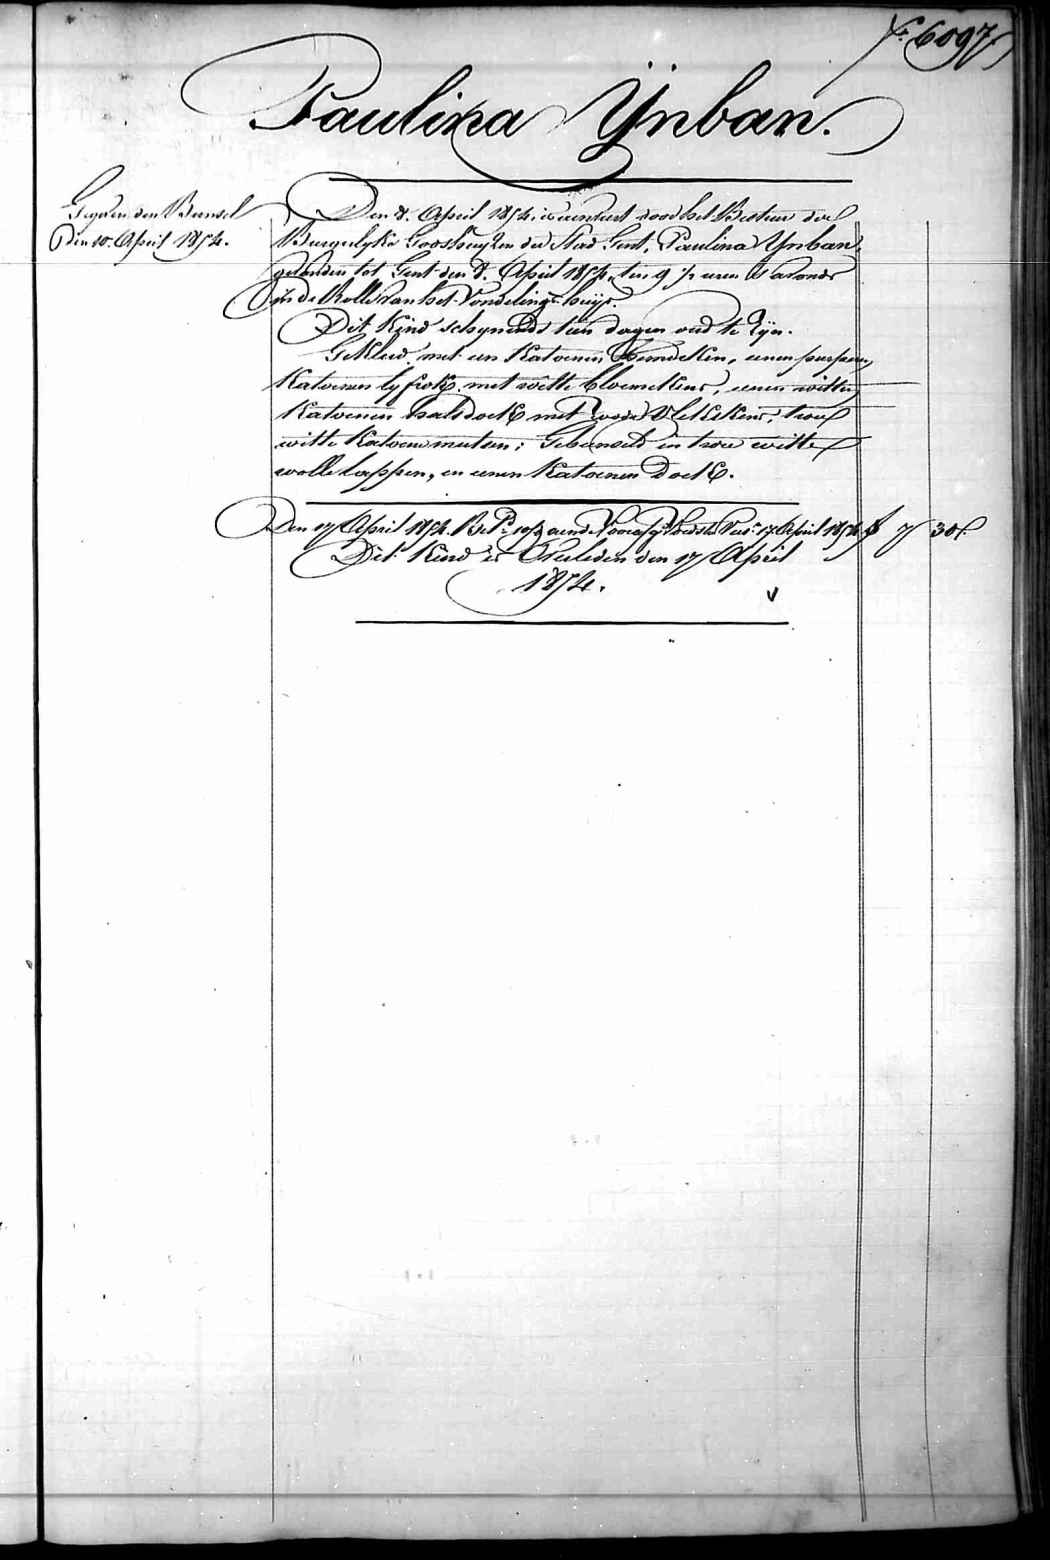 f.° 6097
Paulina Ynban.
Gegeven den Bunsel
Den 10. April 1854.
Den 8. April 1854. is aenveert door het Bestuer der
Burgerlyke Godshuyzen der Stad Gent, Paulina Ynban,
gevonden tot Gent den 8. April 1854, ten 9 ½ uren 's avonds
in de Rolle van het Vondelings huys.
Dit Kind schynende tien dagen oud te zyn.
Gekleed met een Katoenen Hemdeken, eenen purperen
Katoenen lyfrok met witte bloemekens, eenen witten
Katoenen halsdoek met roode Vlekskens, twee
witte Katoene mutsen; Gebunseld in twee witte
wolle lappen, en eenen Katoenen Doek.
Den 17 April 1854. Bet. aen de 17 April 1854 f 7 30
Dit Kind is Overleden den 17 April
1854.